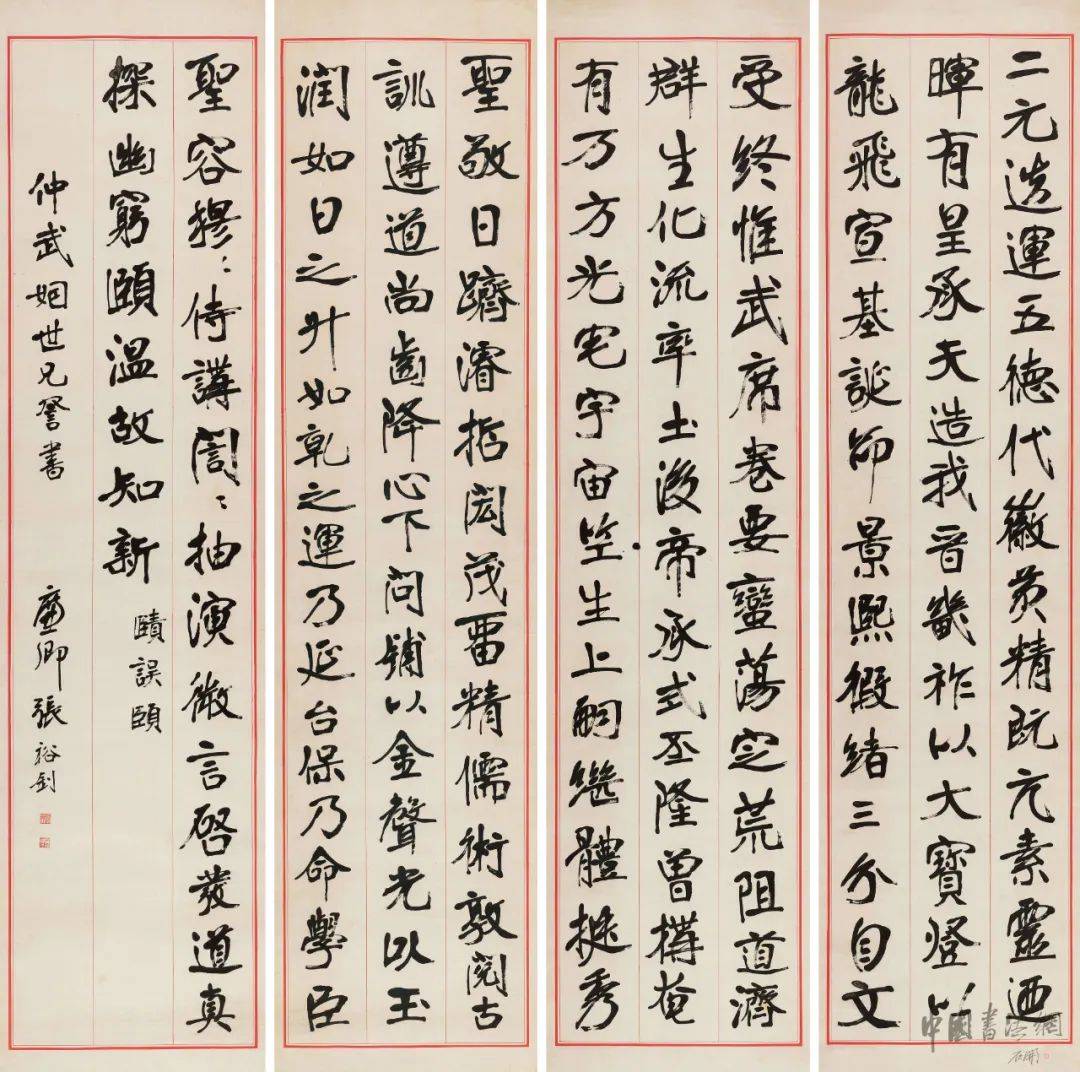 二元迭運五德代徽黄精既亢素靈迺
暉有呈承天造我晉畿祚以大寶燈以
龍飛宣基誕命景熙徦緒三分自文
受終惟武席卷要蠻蕩定荒阻道濟
群生化流率土後帝承式丕隆曾構奄
有万方光宅宇宙竺生上嗣繼體挺秀
聖敬日躋濬哲閎茂畱精儒術敦閱古
訓遵道尚齒降心下問鋪以金聲光以玉
潤如日之升如乾之運乃延台保乃命學臣
聖容穆〻侍講誾〻抽演微言啓發道真
探幽窮頤温故知新
賾誤頤
仲武姻世兄詧書
廉卿張裕釗
中國書法網